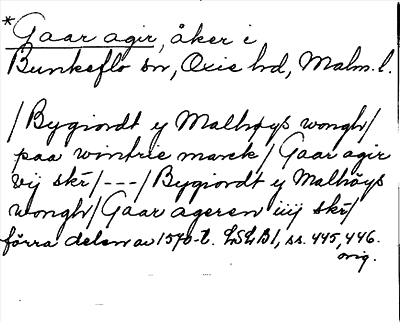 *Gaar agir, åker i
Bunkeflo sn, Oxie hd, Malm. l.
/Bygiordt y Malhøys wongh/
paa wintrie marck/ Gaar agir
vij skr/---/Bygiordt y Malhöys
wongh/Gaar ageren iiij skr/
förra delen av 1570-t. LSLB1, ss. 445, 446.
orig.